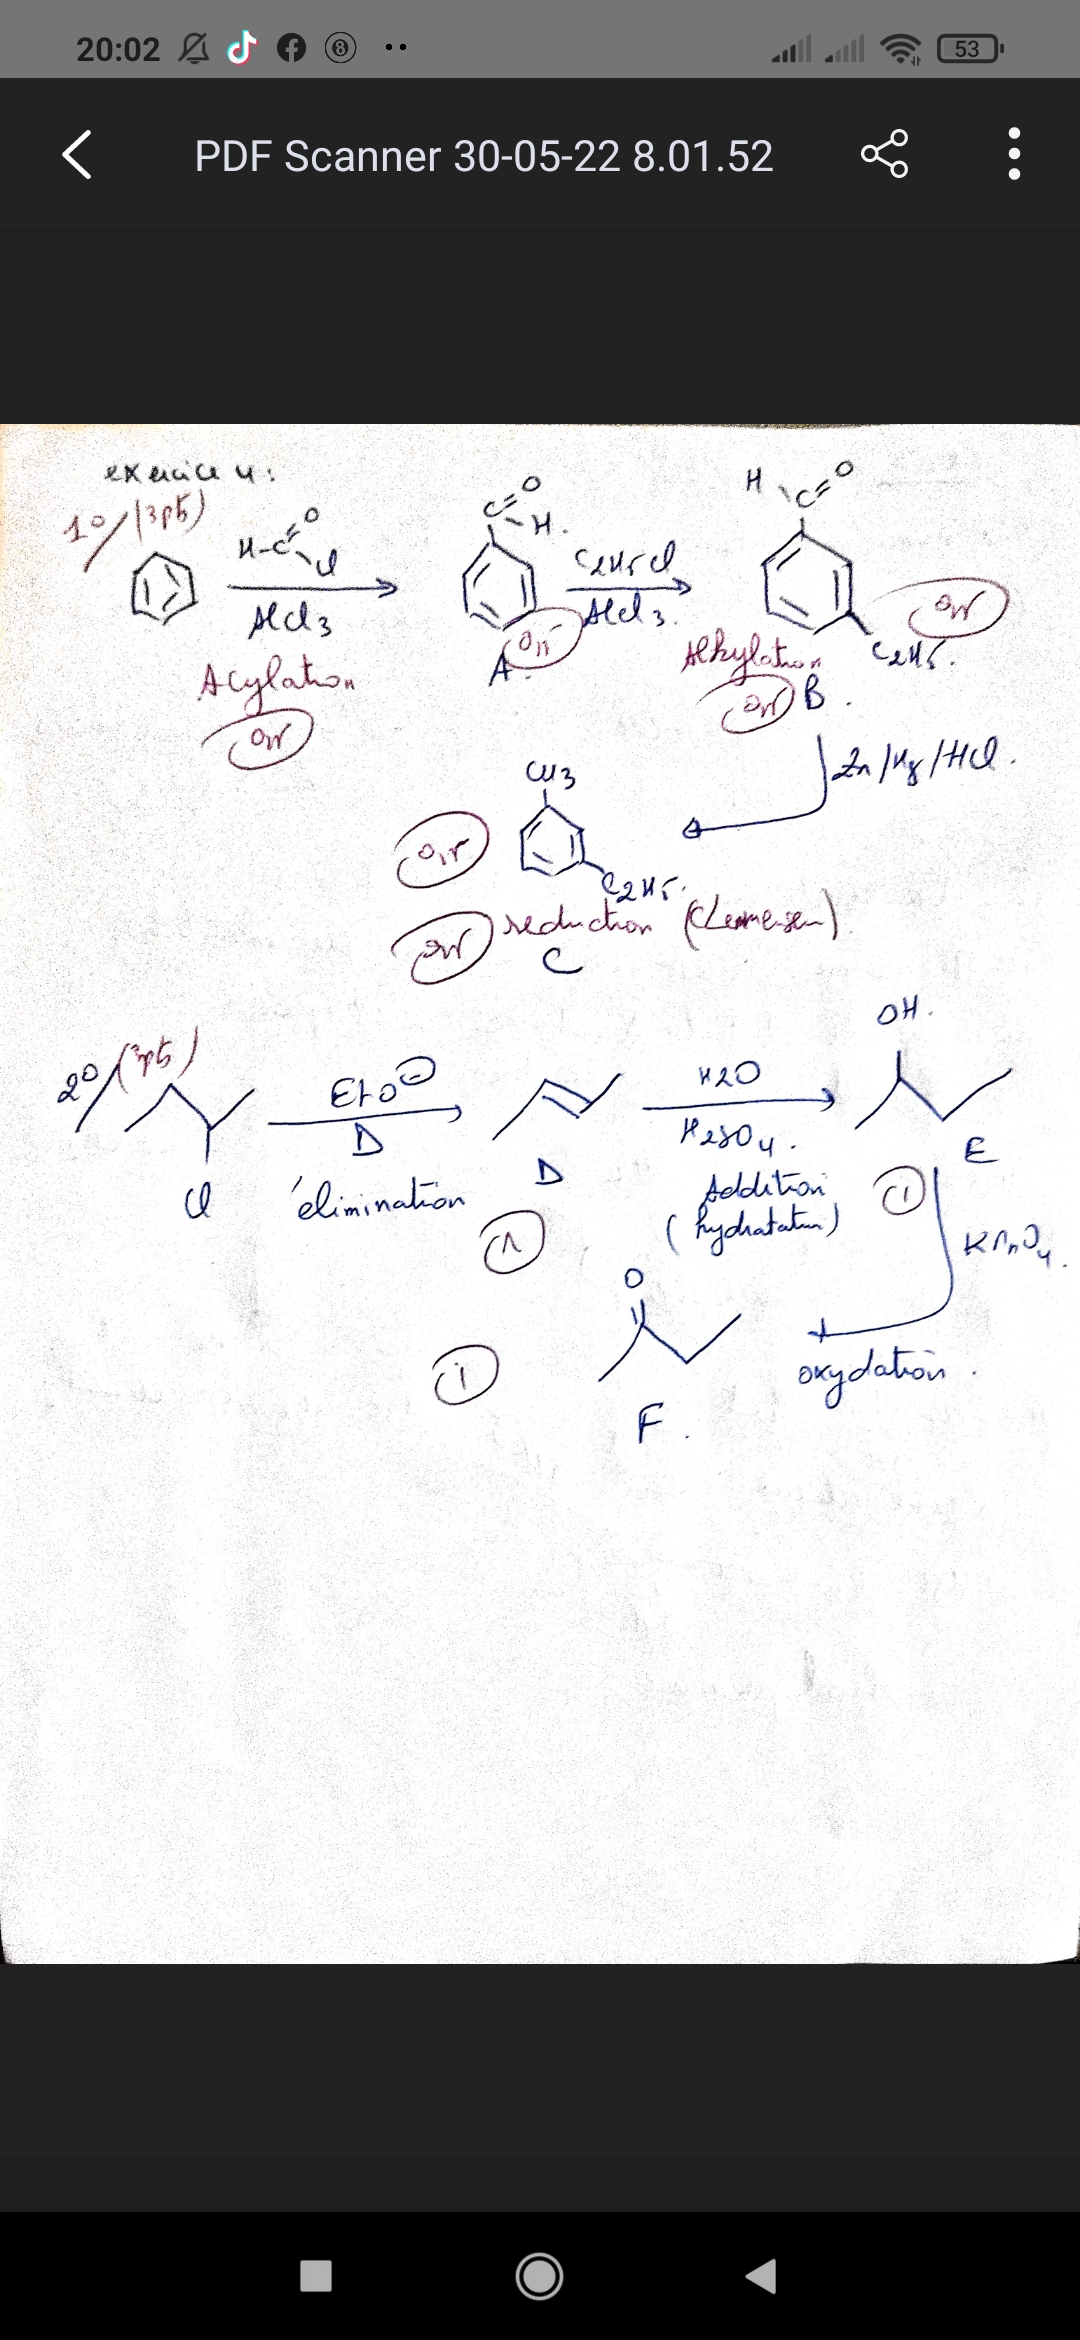 20:02 53
PDF Scanner 30-05-22 8.01.52
exercice 4:
1°/ (3pts)
H-C O Cl
AlCl3
Acylation
0,5
C O H.
A.
0,5
C2H5Cl
AlCl3.
Alkylation
0,5
H C O
C2H5.
0,5
B.
Zn/Hg/HCl.
CH3
C2H5.
0,5
0,5
reduction (Clemmensen)
C
2°/ (3pts)
Cl
EtO⊖
Δ
élimination
D
1
H2O
H2SO4.
Addition
(hydratation)
OH.
E
1
KMnO4.
oxydation.
O
F.
1